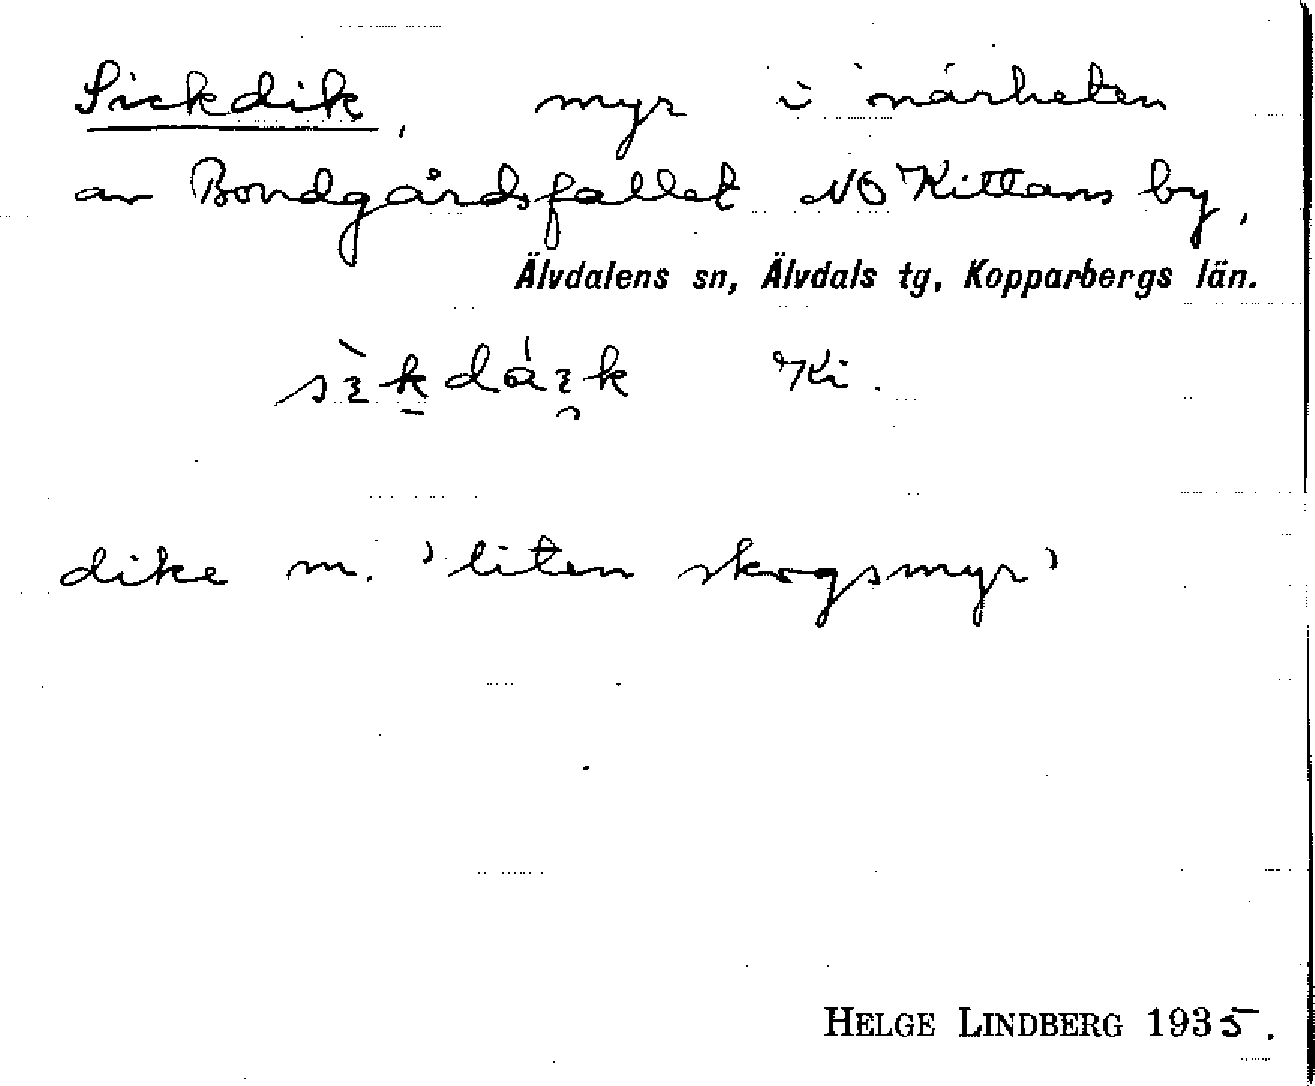 Sickdik, myr i närheten
av Bondgårdsfallet NO Kittans by,
Älvdalens sn, Älvdals tg, Kopparbergs län.
Ki.
dike m. 'liten skogsmyr'
HELGE LINDBERG 1935.